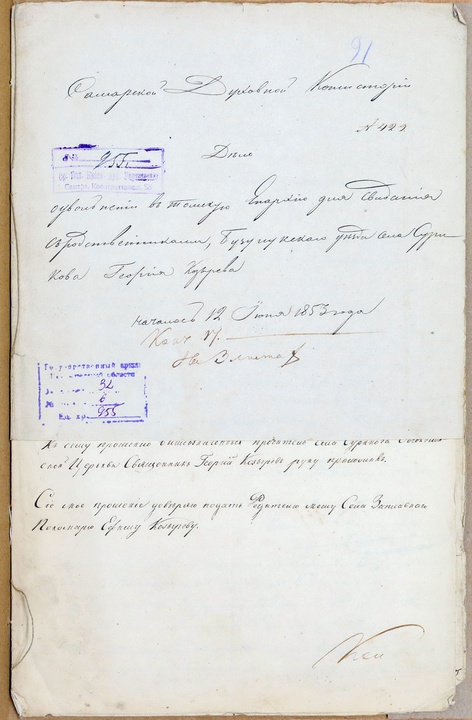 91
Самарской Духовной Консисторіи
№ 422
Дѣло
955.
Самара
объ увольненіи въ Томскую Епархію для свиданія
съ родственниками, Бузулукскаго уѣзда села Сури-
кова Георгія Козырева
Началось 12 Іюня 1853 года
На 3 листах
Государственный архив
области
32
№ 6
Ед. хр. 955
Къ сему прошенію вышеозначенный проситель села Сурикова
ской Церкви Священникъ Георгій Козыревъ руку приложилъ.
Сіе мое прошеніе довѣряю подать Родителю моему Села
Пономарю Ефиму Козыреву.